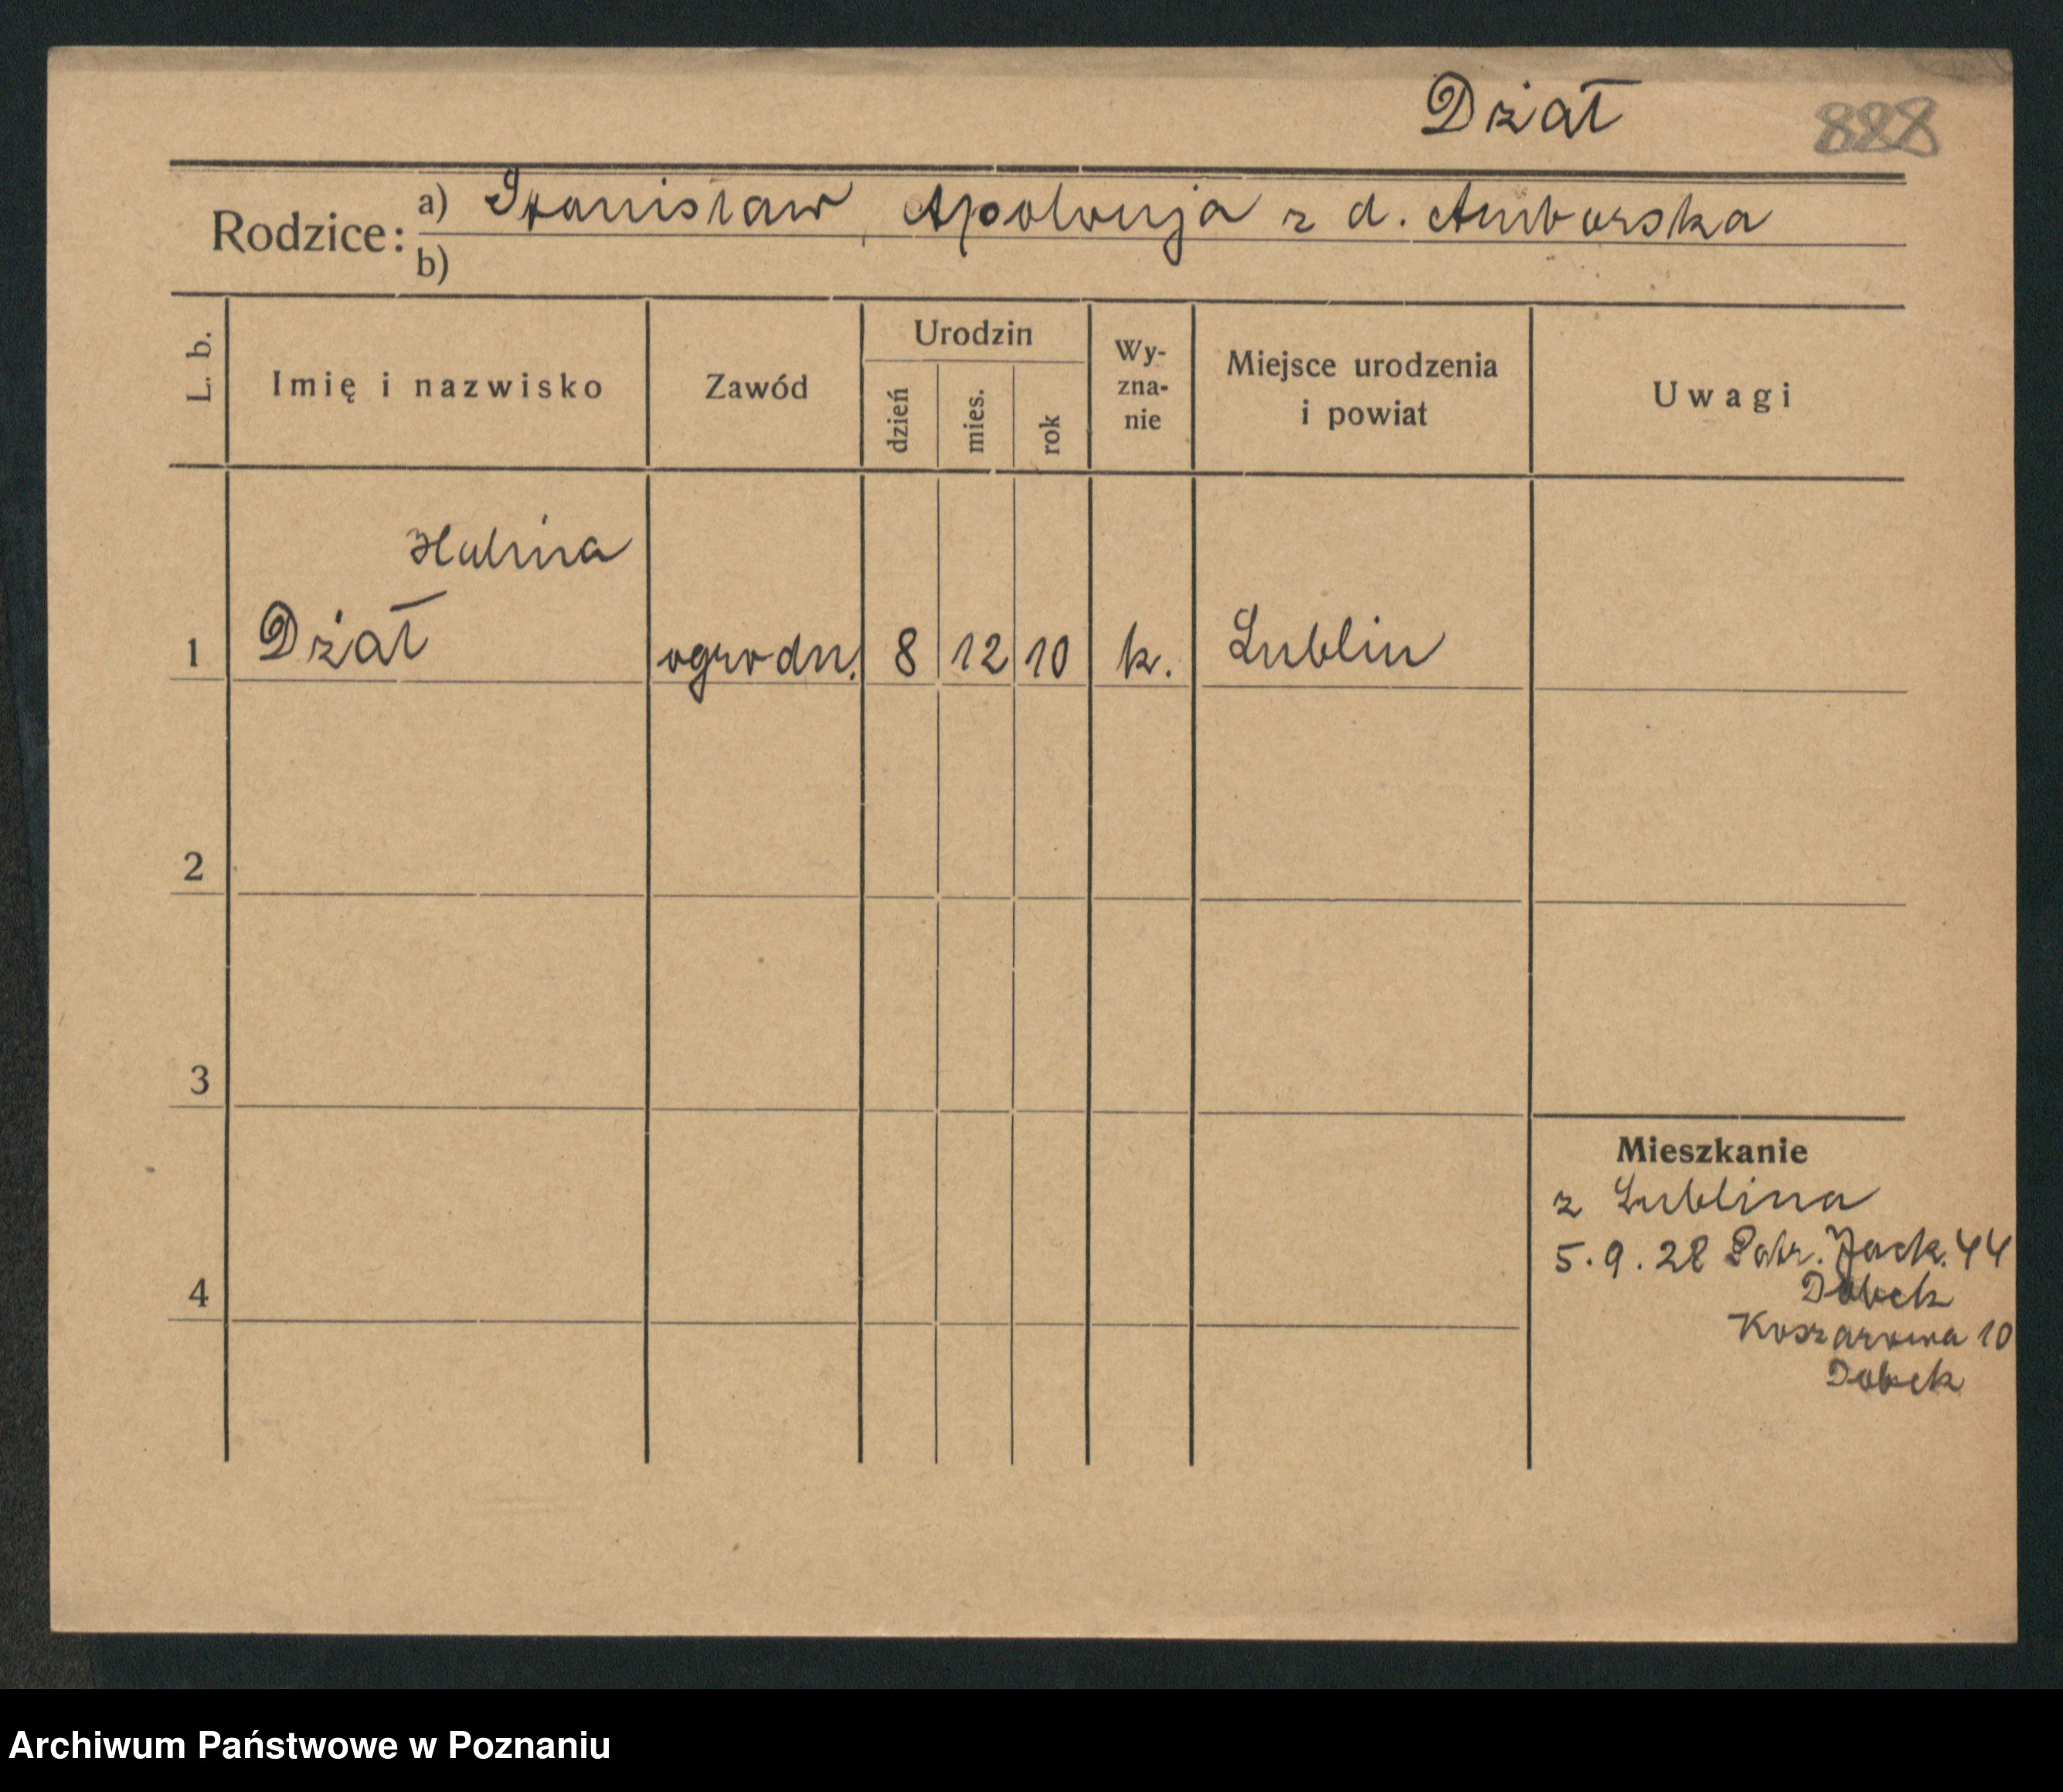 Dział 888
Rodzice: a) Stanisław, Apolonja z d. Amborska
b)
L. b. Imię i nazwisko Zawód Urodzin dzień mies. rok Wy-zna-nie Miejsce urodzenia i powiat Uwagi
Halina
1 Dział ogrodn. 8 12 10 k. Lublin
2
3
Mieszkanie
z Lublina
5.9.28 Patr. Jack. 44
4 Dobek
Koszarowa 10
Dobek
Archiwum Państwowe w Poznaniu